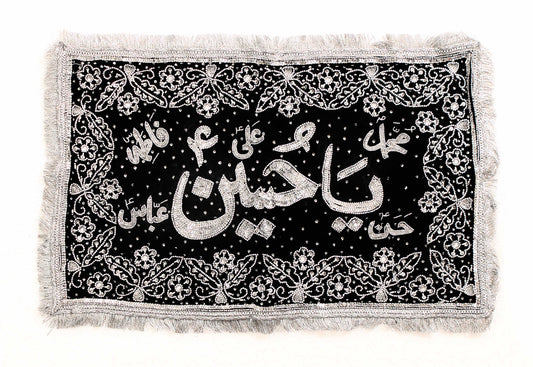 محمد علی فاطمہ
یا حسینؑ
حسن عباس